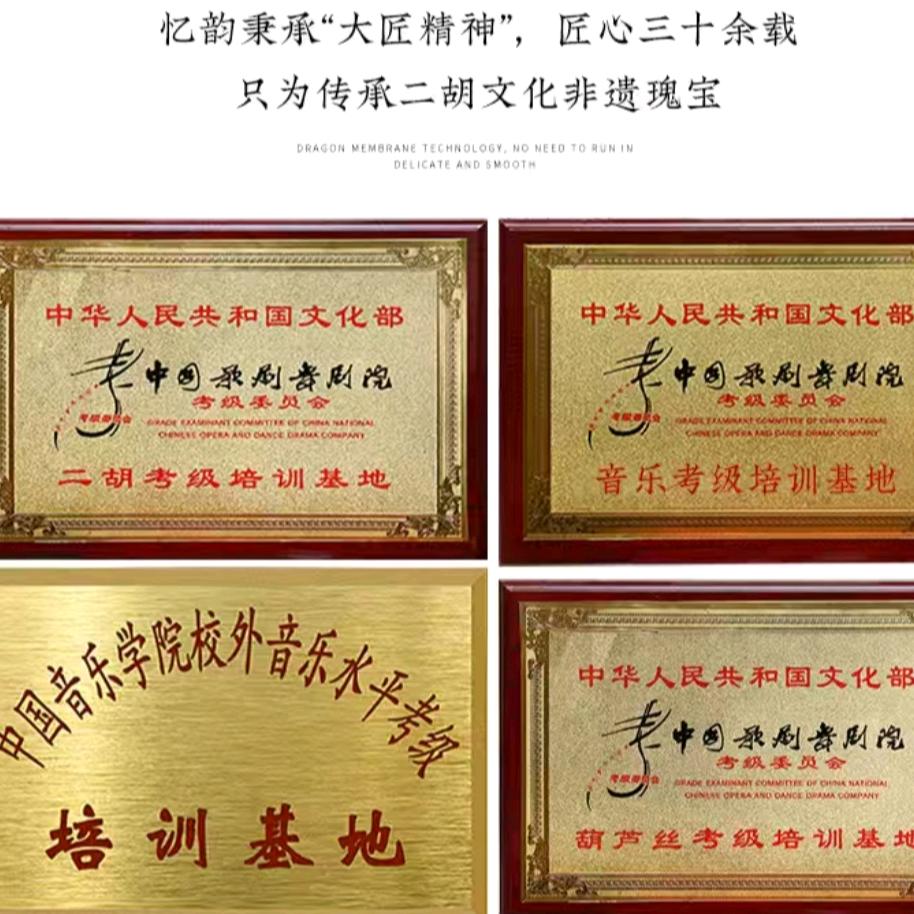 忆韵秉承“大匠精神”，匠心三十余载
只为传承二胡文化非遗瑰宝
DRAGON MEMBRANE TECHNOLOGY, NO NEED TO RUN IN
DELICATE AND SMOOTH
中华人民共和国文化部
中国歌剧舞剧院
考级委员会
考级委员会
GRADE EXAMINANT COMMITTEE OF CHINA NATIONAL
CHINESE OPERA AND DANCE DRAMA COMPANY
二胡考级培训基地
中华人民共和国文化部
中国歌剧舞剧院
考级委员会
考级委员会
GRADE EXAMINANT COMMITTEE OF CHINA NATIONAL
CHINESE OPERA AND DANCE DRAMA COMPANY
音乐考级培训基地
中国音乐学院校外音乐水平考级
培训基地
中华人民共和国文化部
中国歌剧舞剧院
考级委员会
考级委员会
GRADE EXAMINANT COMMITTEE OF CHINA NATIONAL
CHINESE OPERA AND DANCE DRAMA COMPANY
葫芦丝考级培训基地